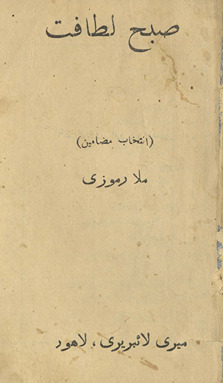 صبح لطافت
(انتخاب مضامین)
ملا رموزی
میری لائبریری، لاہور